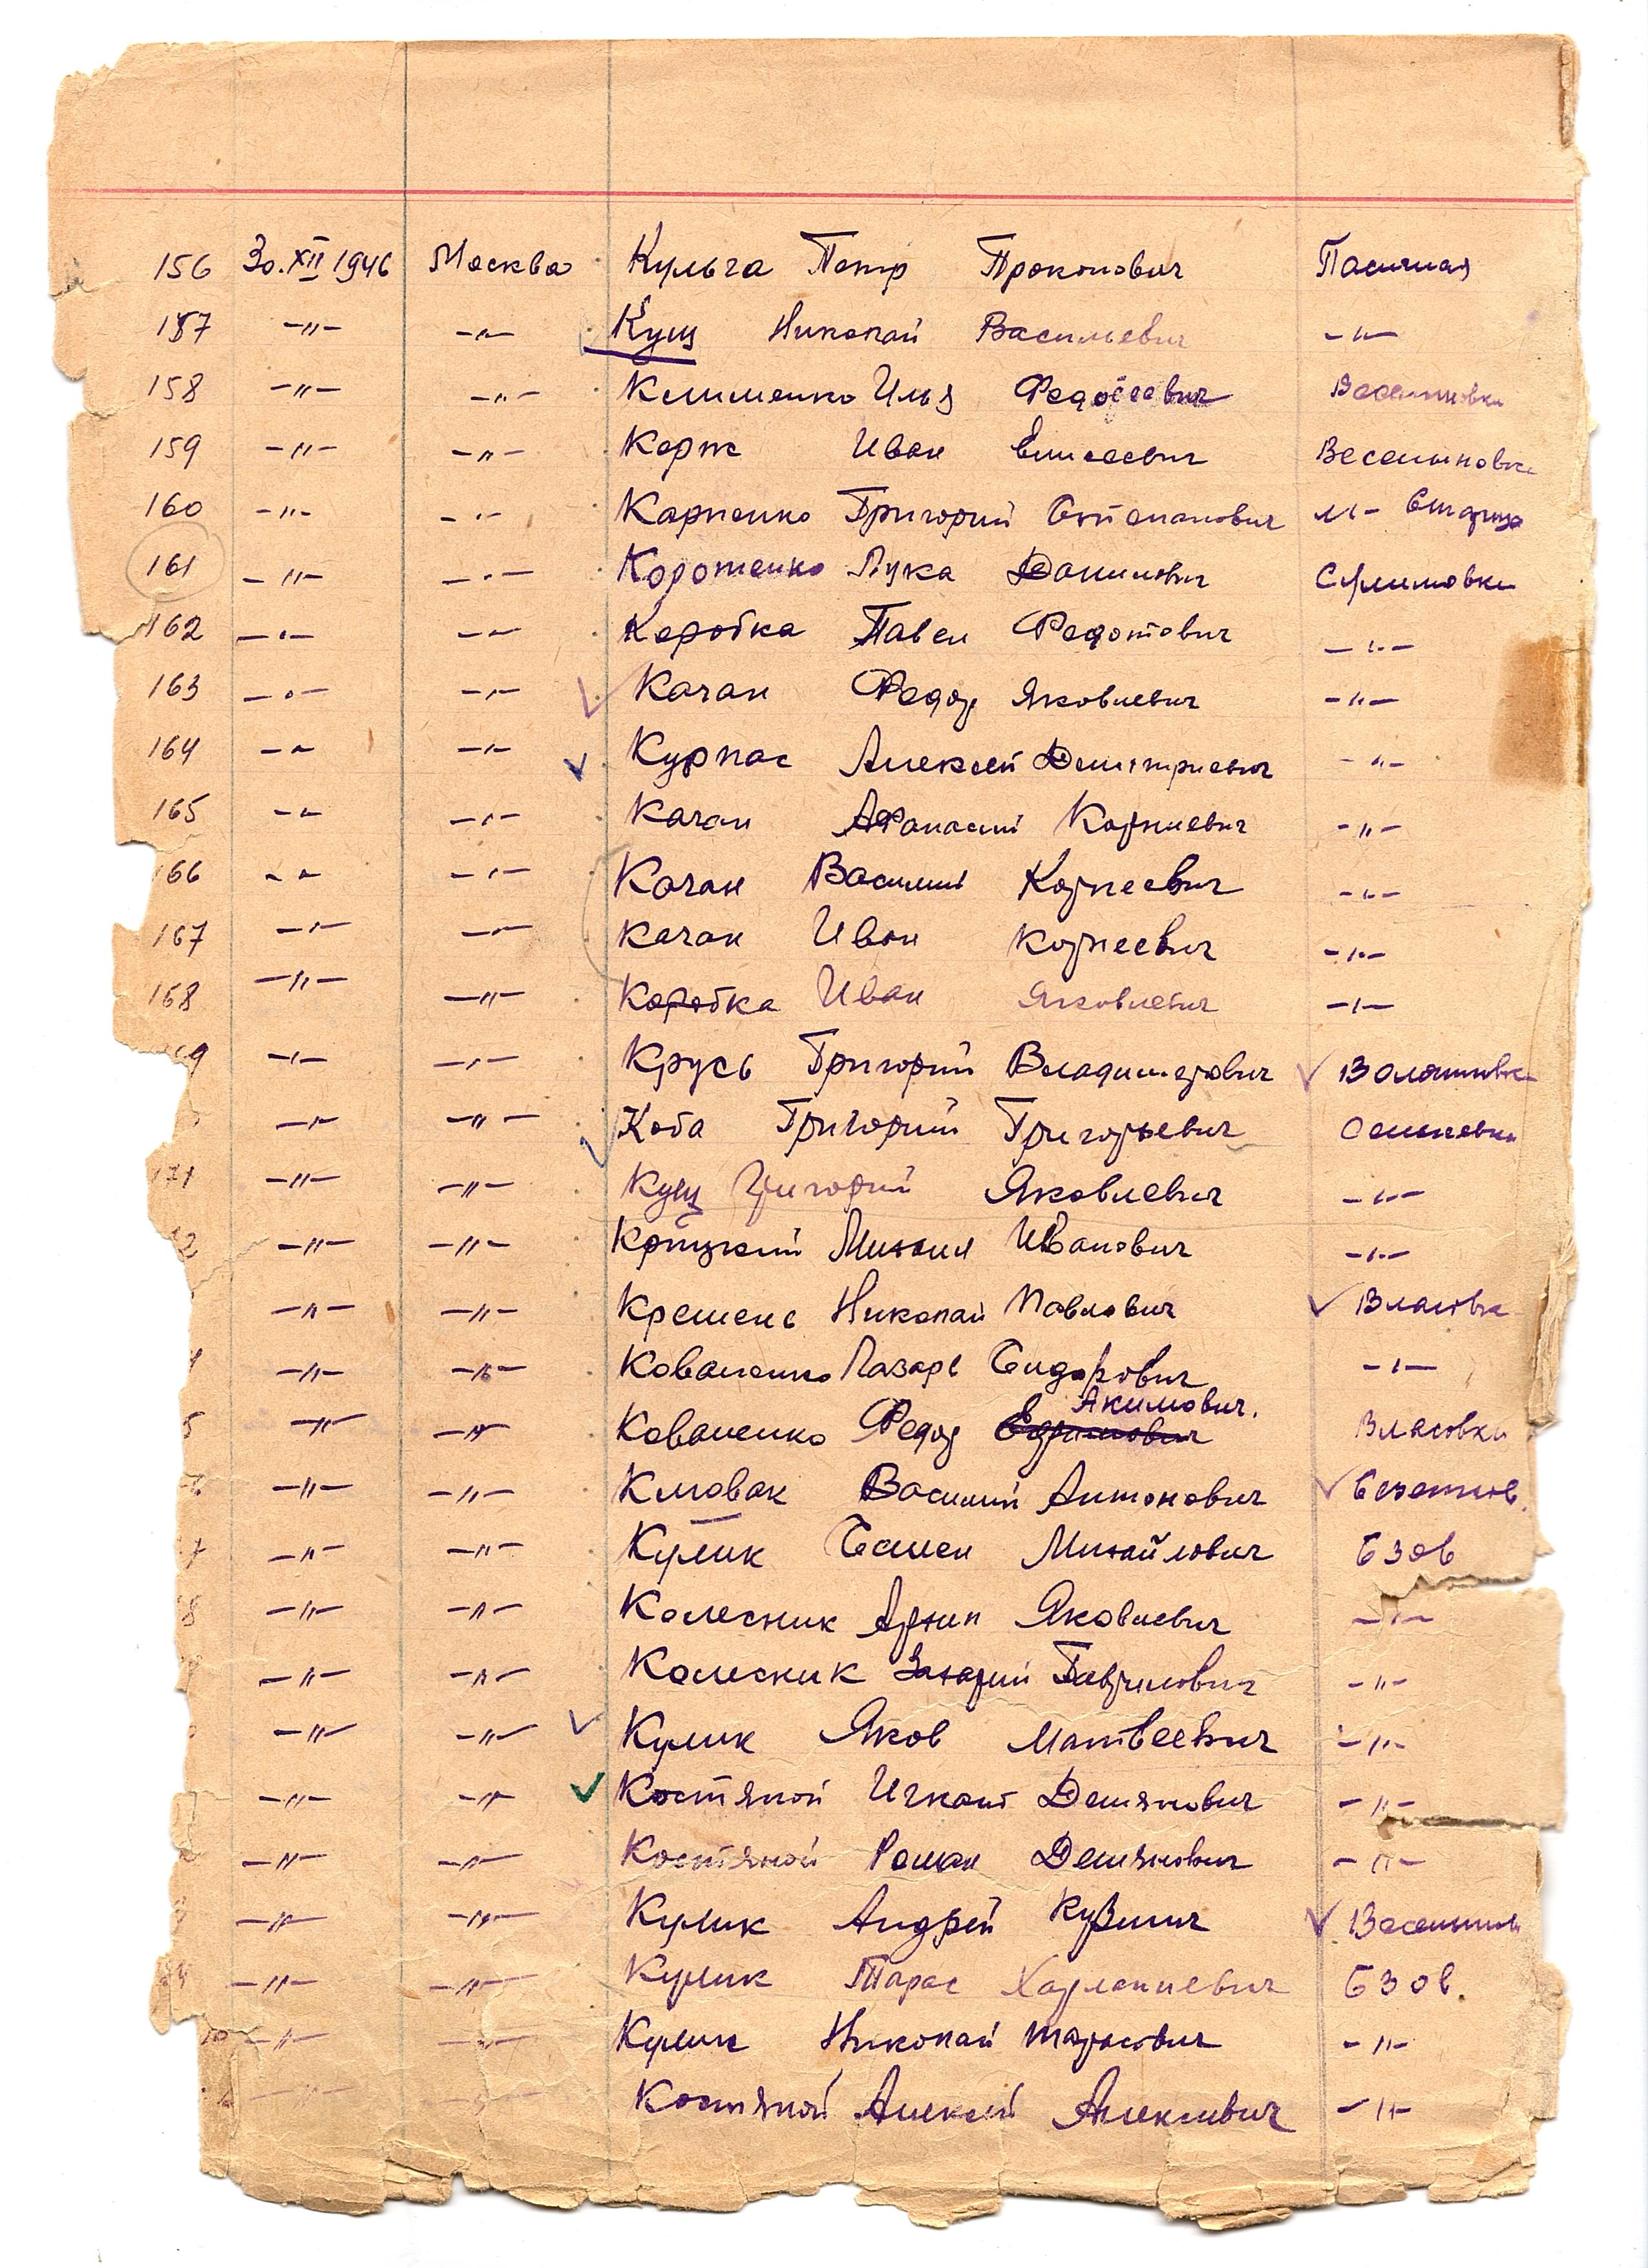 156 30.XII 1946 Москва Кульга Петр Прокопович Пасичная
157 -"- -"- Кущ Николай Васильевич -"-
158 -"- -"- Клименко Илья Федосеевич Веселиновка
159 -"- -"- Корж Иван Елисеевич Веселиновка
160 -"- -"- Карпенко Григорий Степанович М-Старица
161 -"- -"- Коротенко Лука Данилович Селимовка
162 -"- -"- Коробка Павел Федотович -"-
163 -"- -"- Качан Федор Яковлевич -"-
164 -"- -"- Курпас Алексей Дмитриевич -"-
165 -"- -"- Качан Афанасий Корниевич -"-
166 -"- -"- Качан Василий Корнеевич -"-
167 -"- -"- Качан Иван Корнеевич -"-
168 -"- -"- Коробка Иван Яковлевич -"-
9 -"- -"- Крусь Григорий Владимерович
-"- -"- Коба Григорий Григорьевич Семеновка
171 -"- -"- Кущ Григорий Яковлевич -"-
2 -"- -"- Михаил Иванович -"-
-"- -"- Кремень Николай Павлович Власовка
-"- -"- Коваленко Лазарь Сидорович -"-
5 -"- -"- Коваленко Федор Акимович. Власовка
-"- -"- Василий Антонович
-"- -"- Кулик Семен Михайлович Бзов
8 -"- -"- Колесник Архип Яковлевич -"-
-"- -"- Колесник Захарий Гаврилович -"-
-"- -"- Кулик Яков Матвеевич -"-
-"- -"- Костяной Игнат Демянович -"-
-"- -"- Костяной Роман Демянович -"-
-"- -"- Кулик Андрей Кузмич Веселинов
-"- -"- Кулик Тарас Харлапиевич Бзов.
-"- -"- Кулик Николай Тарасович -"-
-"- -"- Костяной Алексей Алексеевич -"-